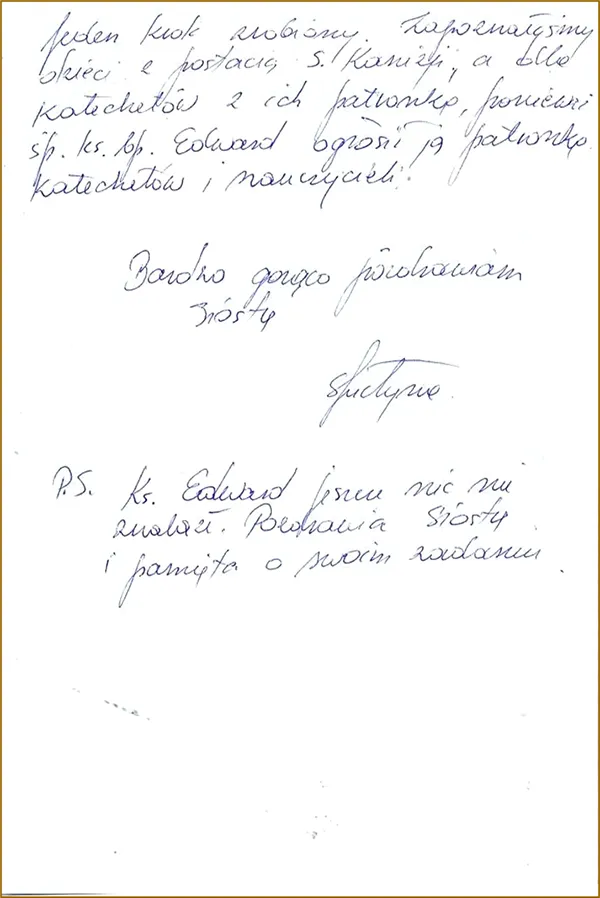 jeden krok zrobiony. Zapoznałyśmy
dzieci z postacią S. Kanizji, a dla
katechetów z ich patronką, ponieważ
śp. ks. bp. Edward ogłosił ją patronką
katechetów i nauczycieli.
Bardzo gorąco pozdrawiam
Siostrę
P.S. Ks. Edward jeszcze nic nie
znalazł. Pozdrawia Siostrę
i pamięta o swoim zadaniu.